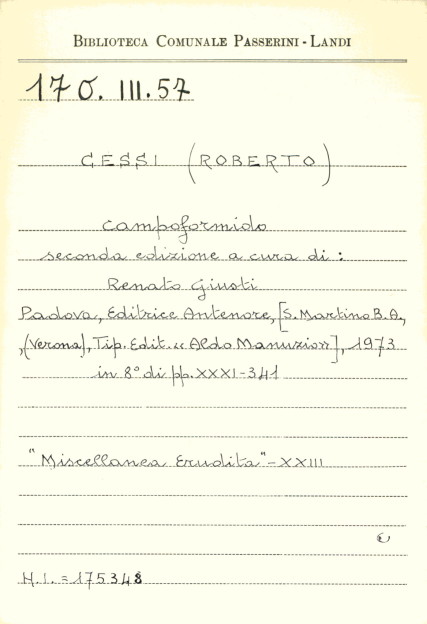 BIBLIOTECA COMUNALE PASSERINI - LANDI
170. III. 57
CESSI (ROBERTO)
Campoformido
seconda edizione a cura di :
Renato Giusti
Padova, Editrice Antenore, [S. Martino B.A.,
,(Verona), Tip. Edit. "Aldo Manuzio"], 1973
in 8° di pp. XXXI-341
"Miscellanea Erudita" - XXIII
H. I. = 175348